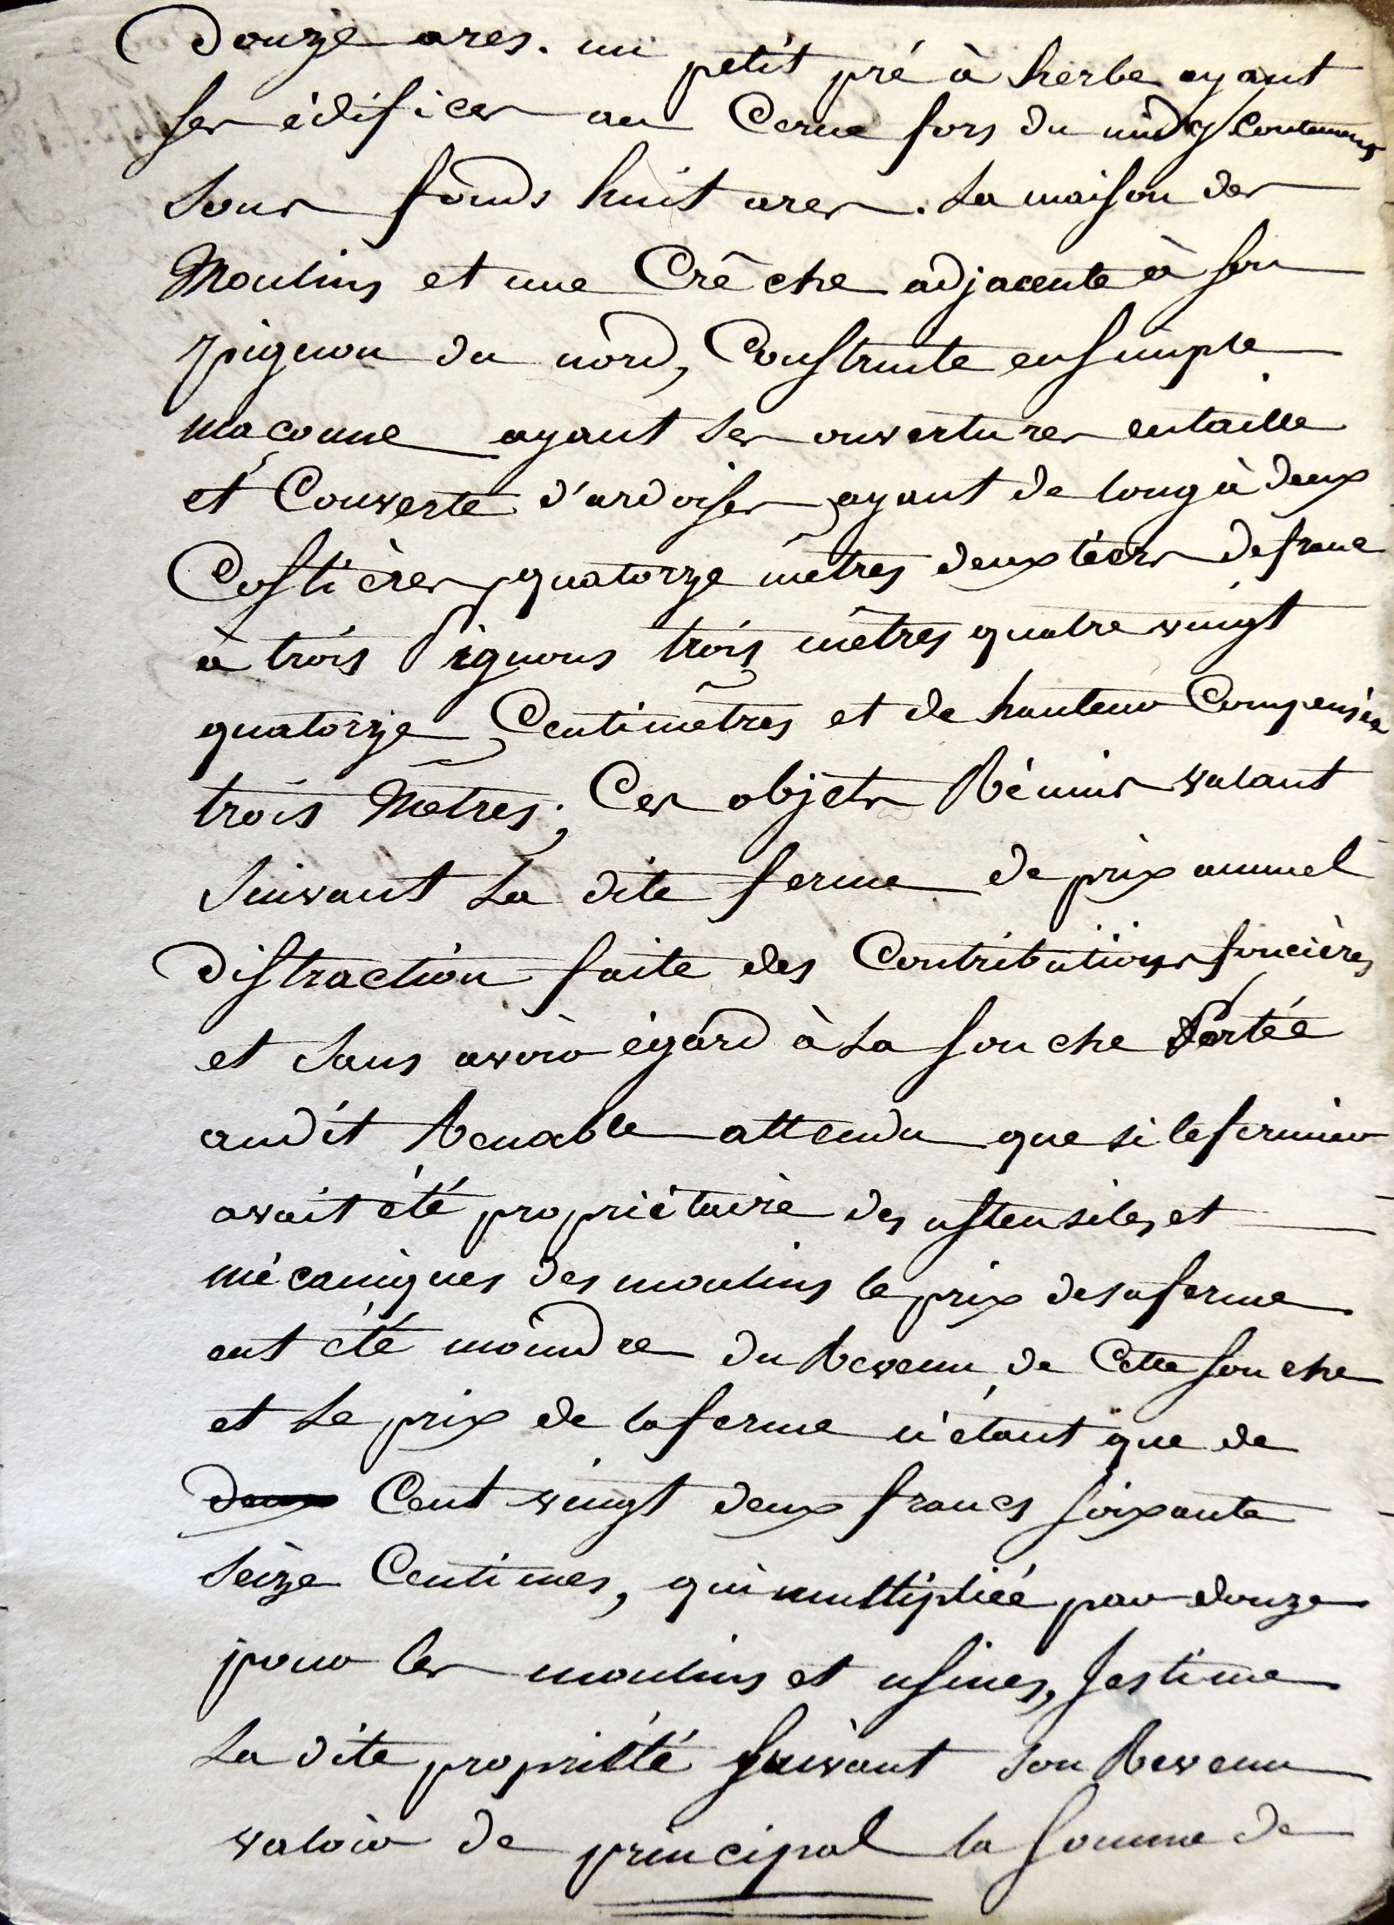 Douze ares. un petit pré à herbe ayant
ses édifices au Cerne fors du midy Contenant
sous fonds huit ares. La maison des
Moulins et une Crêche adjacente à son
pignon du nord, Construite en simple
maçonne ayant ses ouvertures en taille
et Couverte d'ardoises, ayant de long à deux
Costières, quatorze mètres deux tiers de franc
à trois Pignons trois mètres quatre vingt
quatorze Centimètres et de hauteur Compensée
trois Mètres; Ces objets Réunis valant
suivant La dite ferme de prix annuel
distraction faite des Contributions foncières
et sans avoir égard à La souche Portée
audit Renable attendu que si le fermier
avait été propriétaire des ustensiles et
mécaniques des moulins le prix de sa ferme
eut été moindre du Revenu de Cette souche
et Le prix de la ferme n'étant que de
deux Cent vingt deux francs soixante
seize Centimes, qui multipliée par douze
pour les moulins et usines, J'estime
La dite propriété suivant son Revenu
valoir de principal la somme de